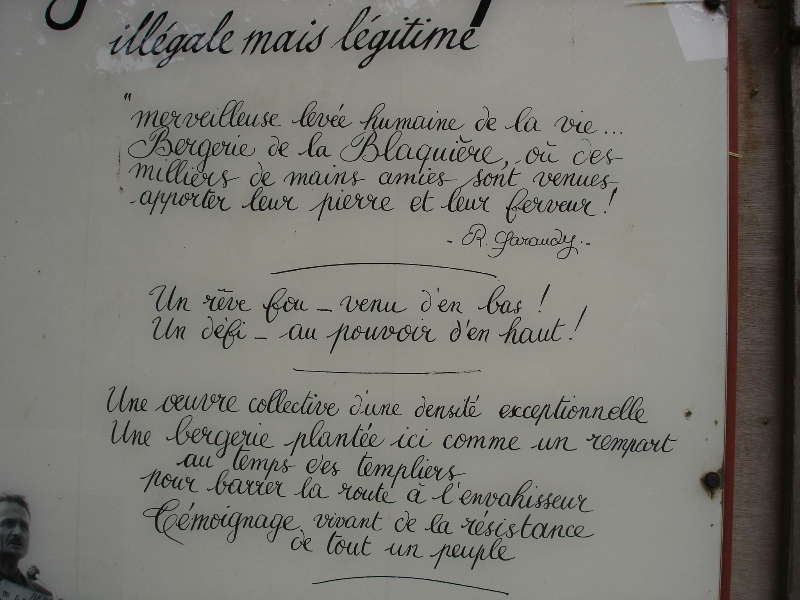 illégale mais légitime
"merveilleuse levée humaine de la vie...
Bergerie de la Blaquière, où des
milliers de mains amies sont venues
apporter leur pierre et leur ferveur !
- R. Garaudy.-
Un rêve fou - venu d'en bas !
Un défi - au pouvoir d'en haut !
Une oeuvre collective d'une densité exceptionnelle
Une bergerie plantée ici comme un rempart
au temps des templiers
pour barrer la route à l'envahisseur
Témoignage vivant de la résistance
de tout un peuple